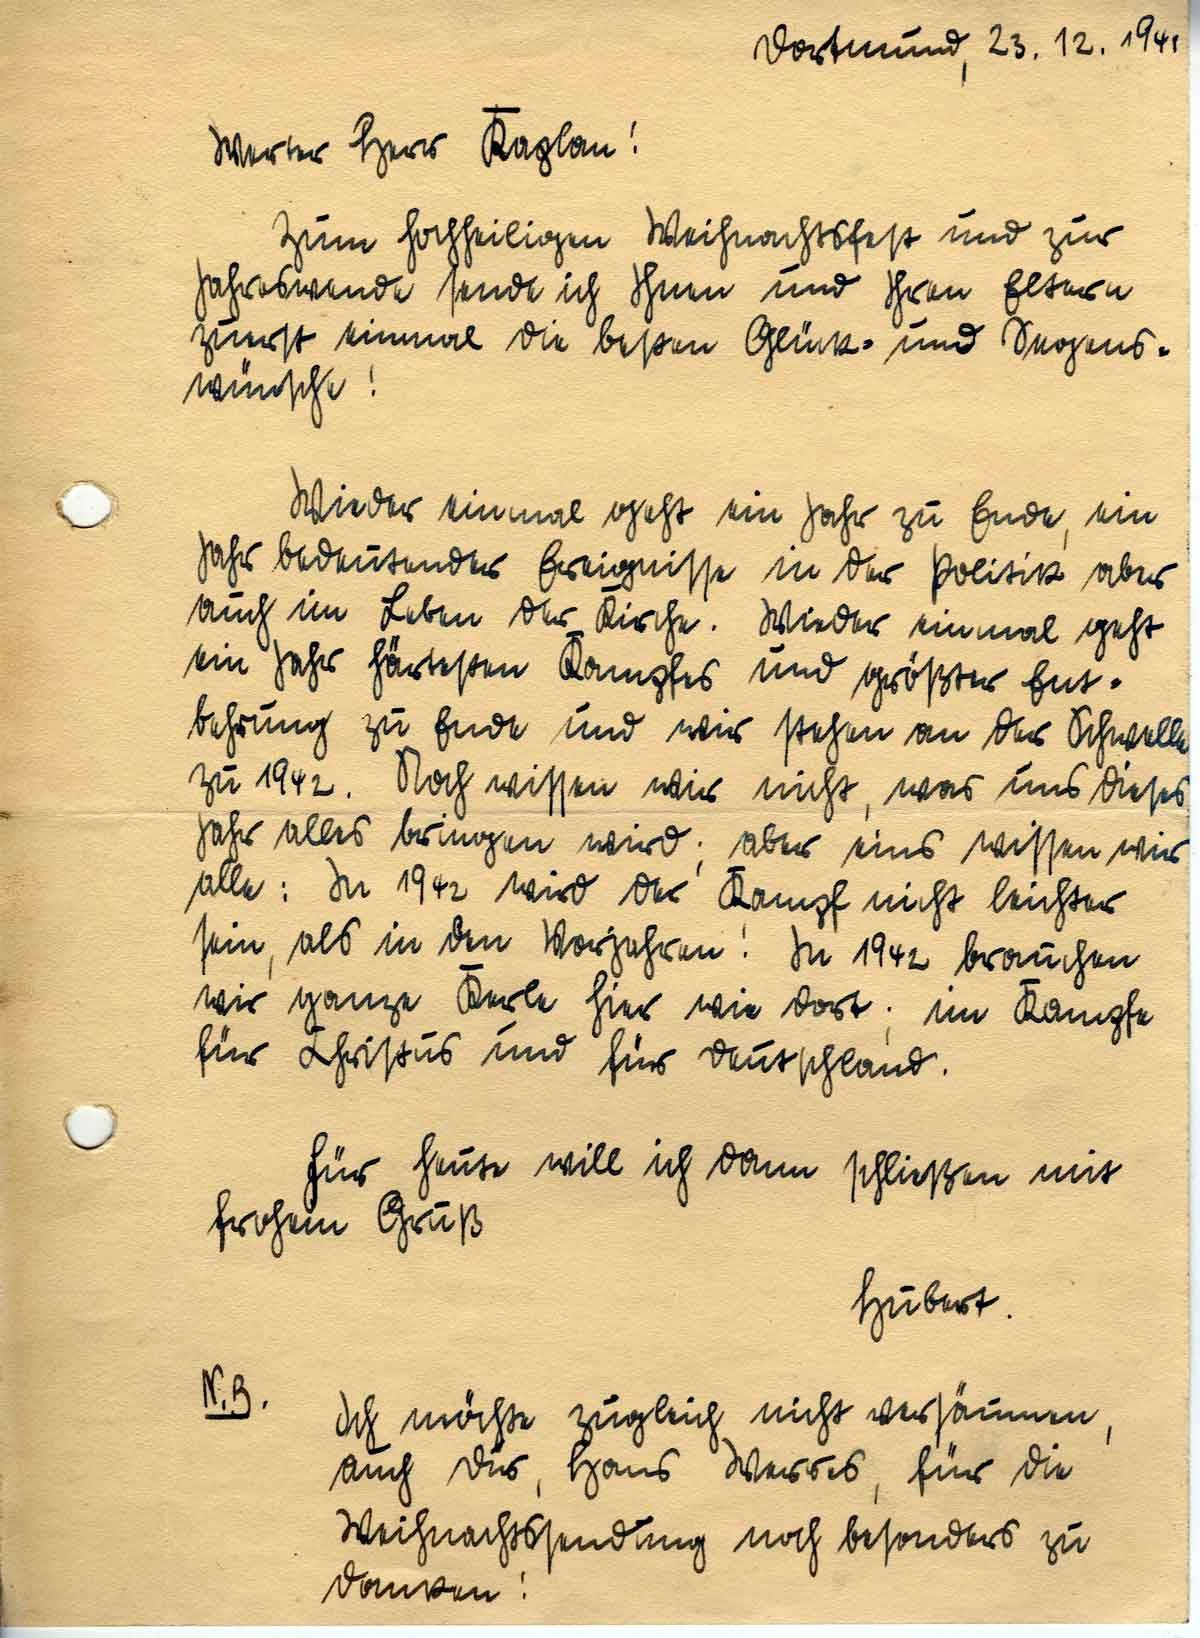 Dortmund, 23.12.1941
Werter Herr Kaplan!
Zum hochheiligen Weihnachtsfest und zur
Jahreswende sende ich Ihnen und Ihren Eltern
zuerst einmal die besten Glück- und Segens-
wünsche!
Wieder einmal geht ein Jahr zu Ende, ein
Jahr bedeutender Ereignisse in der Politik aber
auch im Leben der Kirche. Wieder einmal geht
ein Jahr härtesten Kampfes und größter Ent-
behrung zu Ende und wir stehen an der Schwelle
zu 1942. Noch wissen wir nicht, was uns dieses
Jahr alles bringen wird; aber eins wissen wir
alle: In 1942 wird der Kampf nicht leichter
sein, als in den Vorjahren! In 1942 brauchen
wir ganze Kerle hier wie dort; im Kampfe
für Christus und für Deutschland.
Für heute will ich dann schließen mit
frohem Gruß
Hubert.
N.B. Ich möchte zugleich nicht versäumen,
auch Dir, Hans Werres, für die
Weihnachtssendung noch besonders zu
danken!